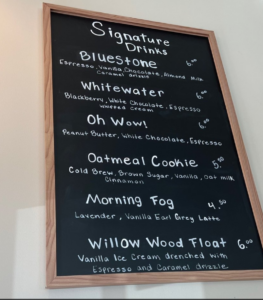 Signature
Drinks
Bluestone 6.00
Espresso, Vanilla, Chocolate, Almond Milk
Caramel drizzle
Whitewater 6.00
Blackberry, White Chocolate, Espresso
Whipped cream
Oh Wow! 6.00
Peanut Butter, White Chocolate, Espresso
Oatmeal Cookie 5.50
Cold Brew, Brown Sugar, Vanilla, oat milk
Cinnamon
Morning Fog 4.50
Lavender, Vanilla Earl Grey Latte
Willow Wood Float 6.00
Vanilla Ice Cream drenched with
Espresso and Caramel drizzle